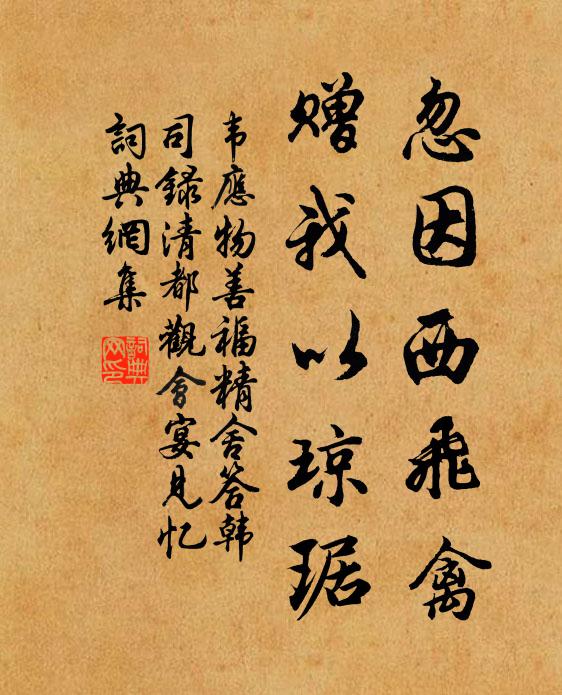 忽因西飛禽
贈我以琼琚
韦應物善福精舍答韩
司録清都觀會宴見忆
詞典網集
詞典
网印